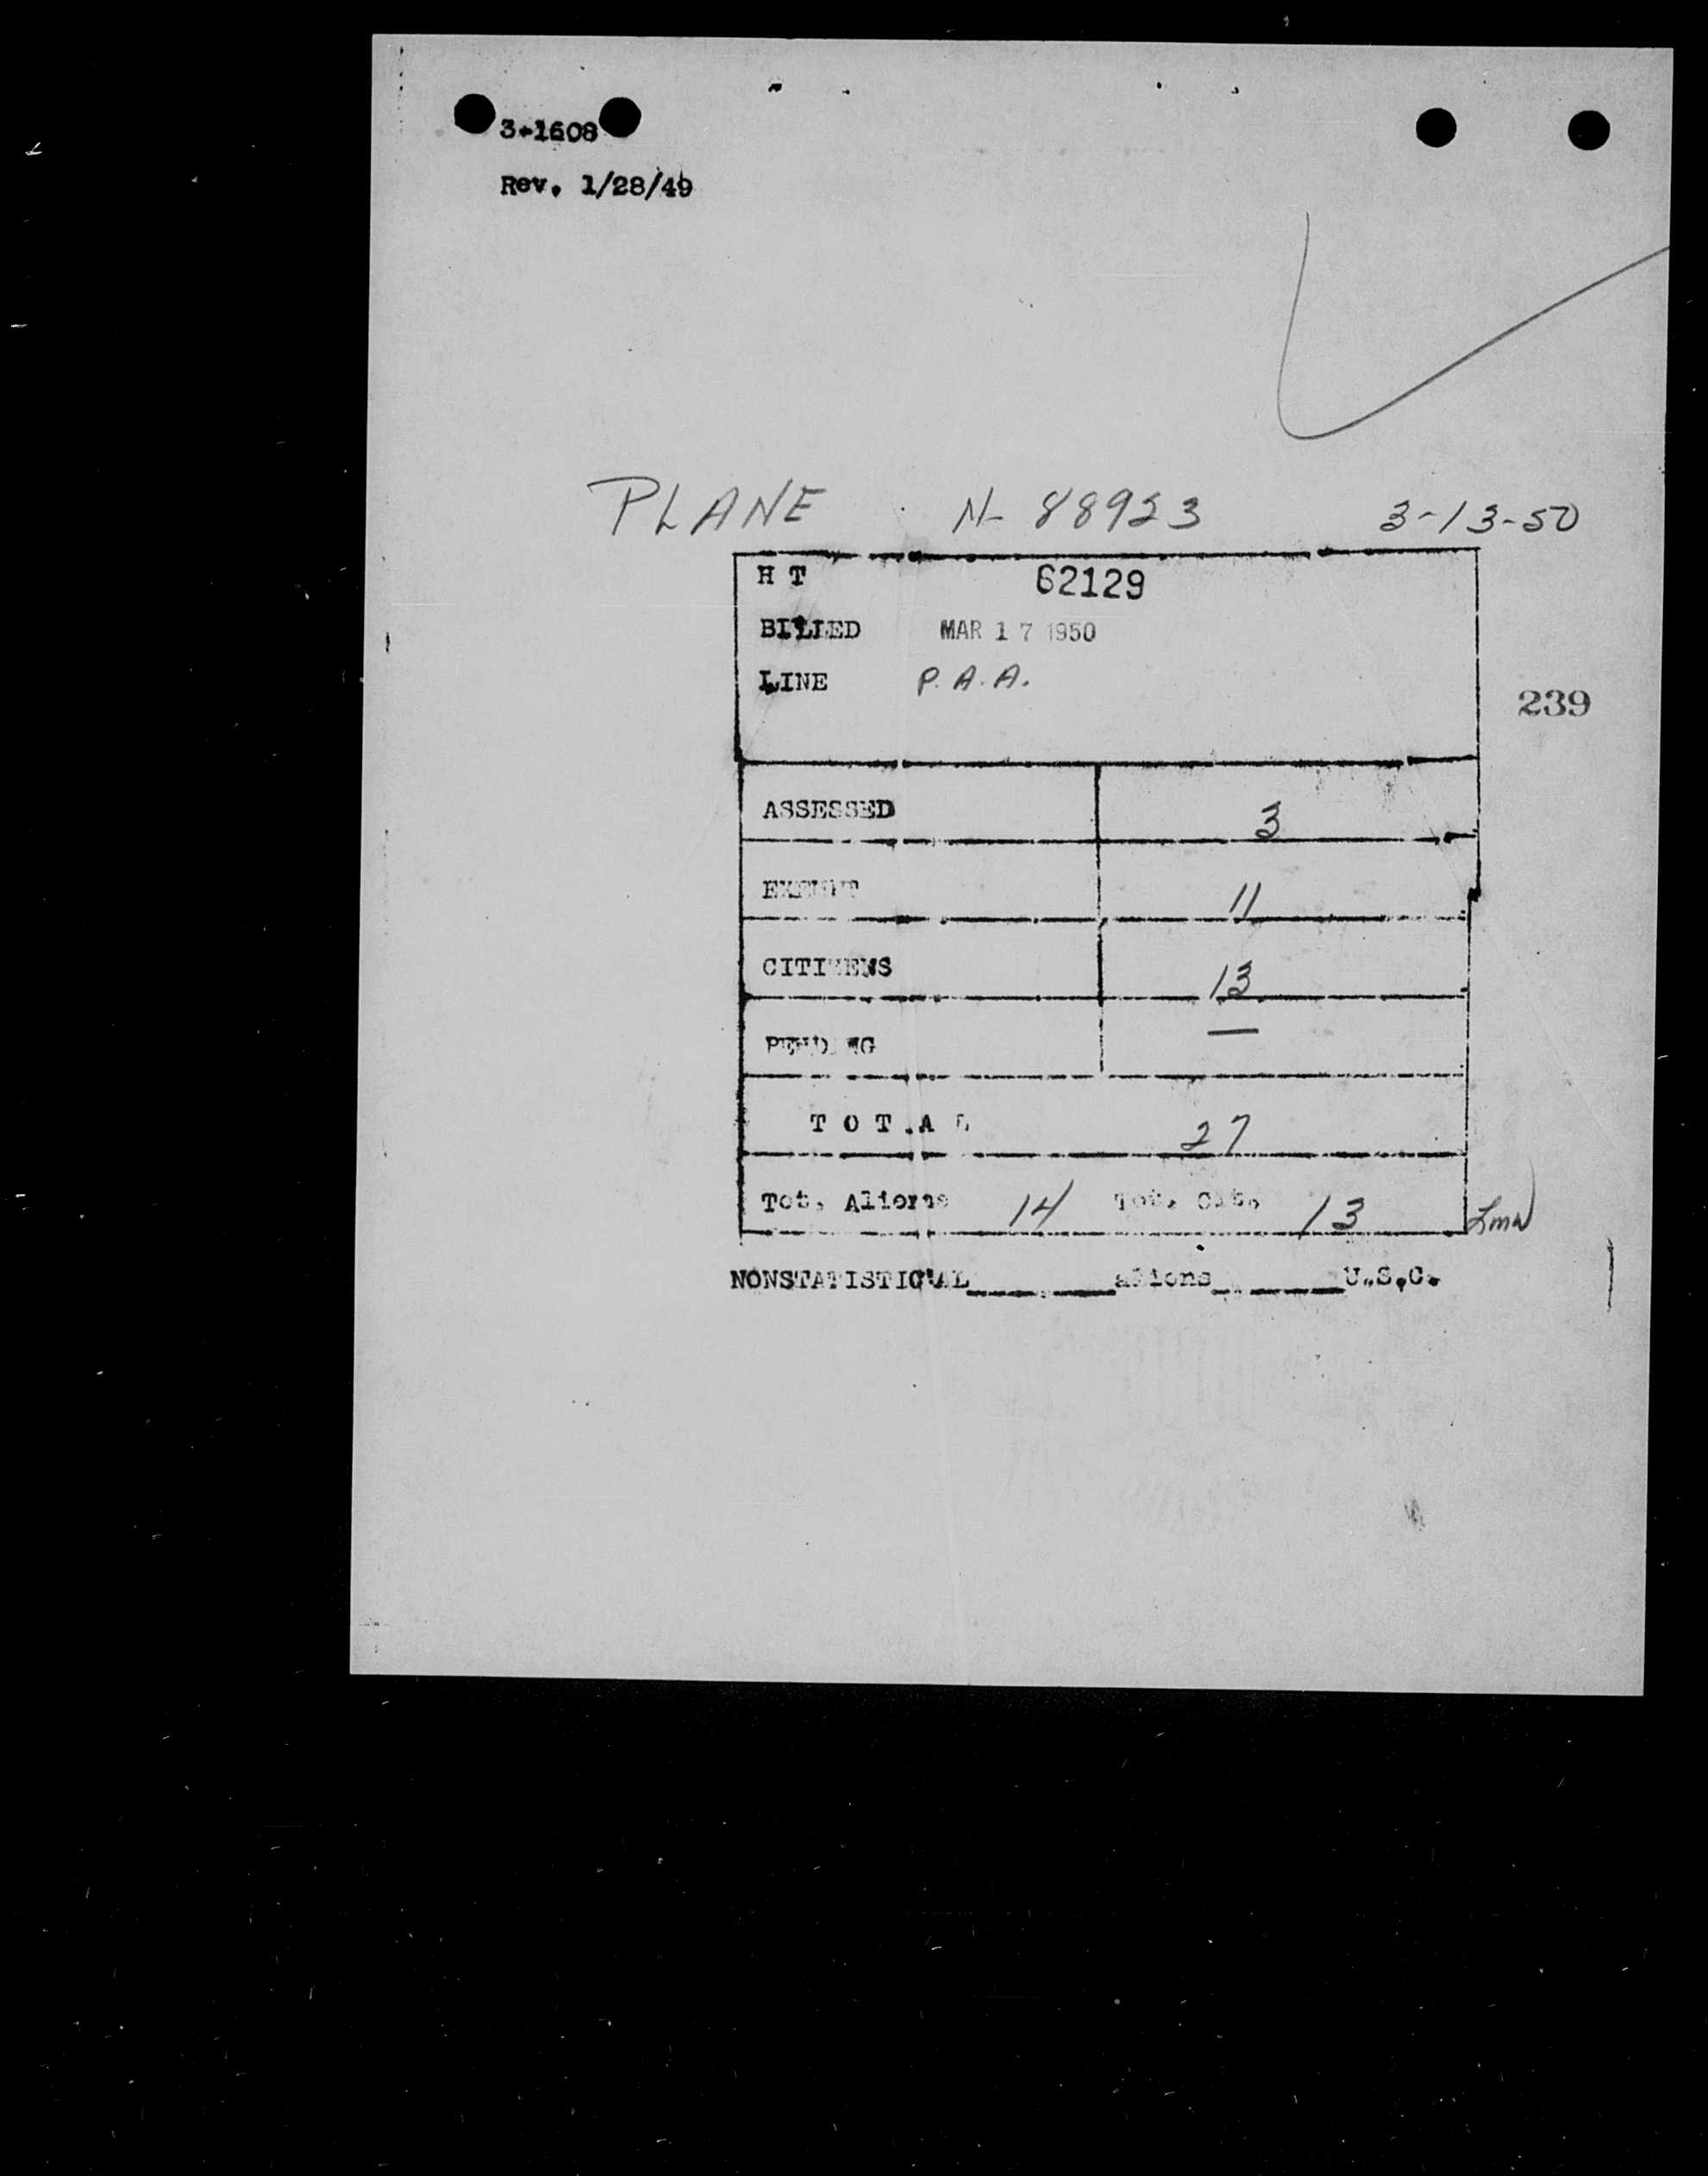 3-1608
Rev. 1/28/49
PLANE N- 88923 3-13-50
H T 62129
BILLED MAR 17 1950
LINE P. A. A.
239
ASSESSED 3
EXEMPT 11
CITIZENS 13
PENDING —
T O T A L 27
Tot. Aliens 14 Tot. Cit. 13
NONSTATISTICAL______aliens______U.S.C.